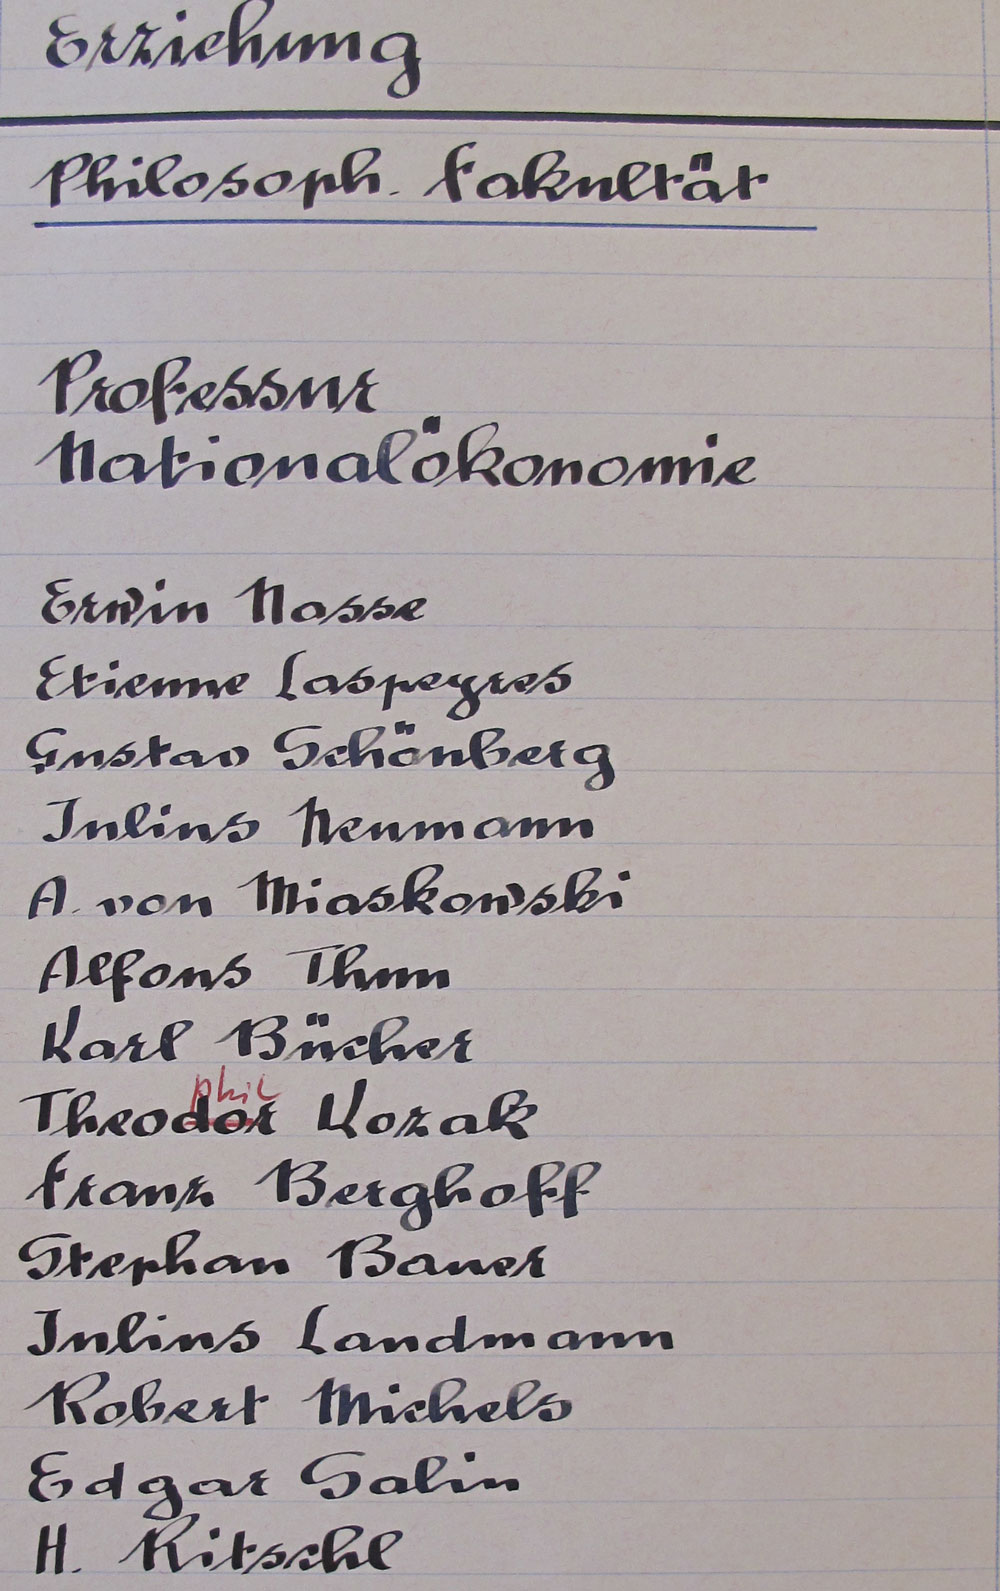 Erziehung
Philosoph. Fakultät
Professur
Nationalökonomie
Erwin Nasse
Etienne Laspeyres
Gustav Schönberg
Julius Neumann
A. von Miaskowski
Alfons Thun
Karl Bücher
phil
Theodor Kozak
Franz Berghoff
Stephan Bauer
Julius Landmann
Robert Michels
Edgar Salin
H. Ritschl